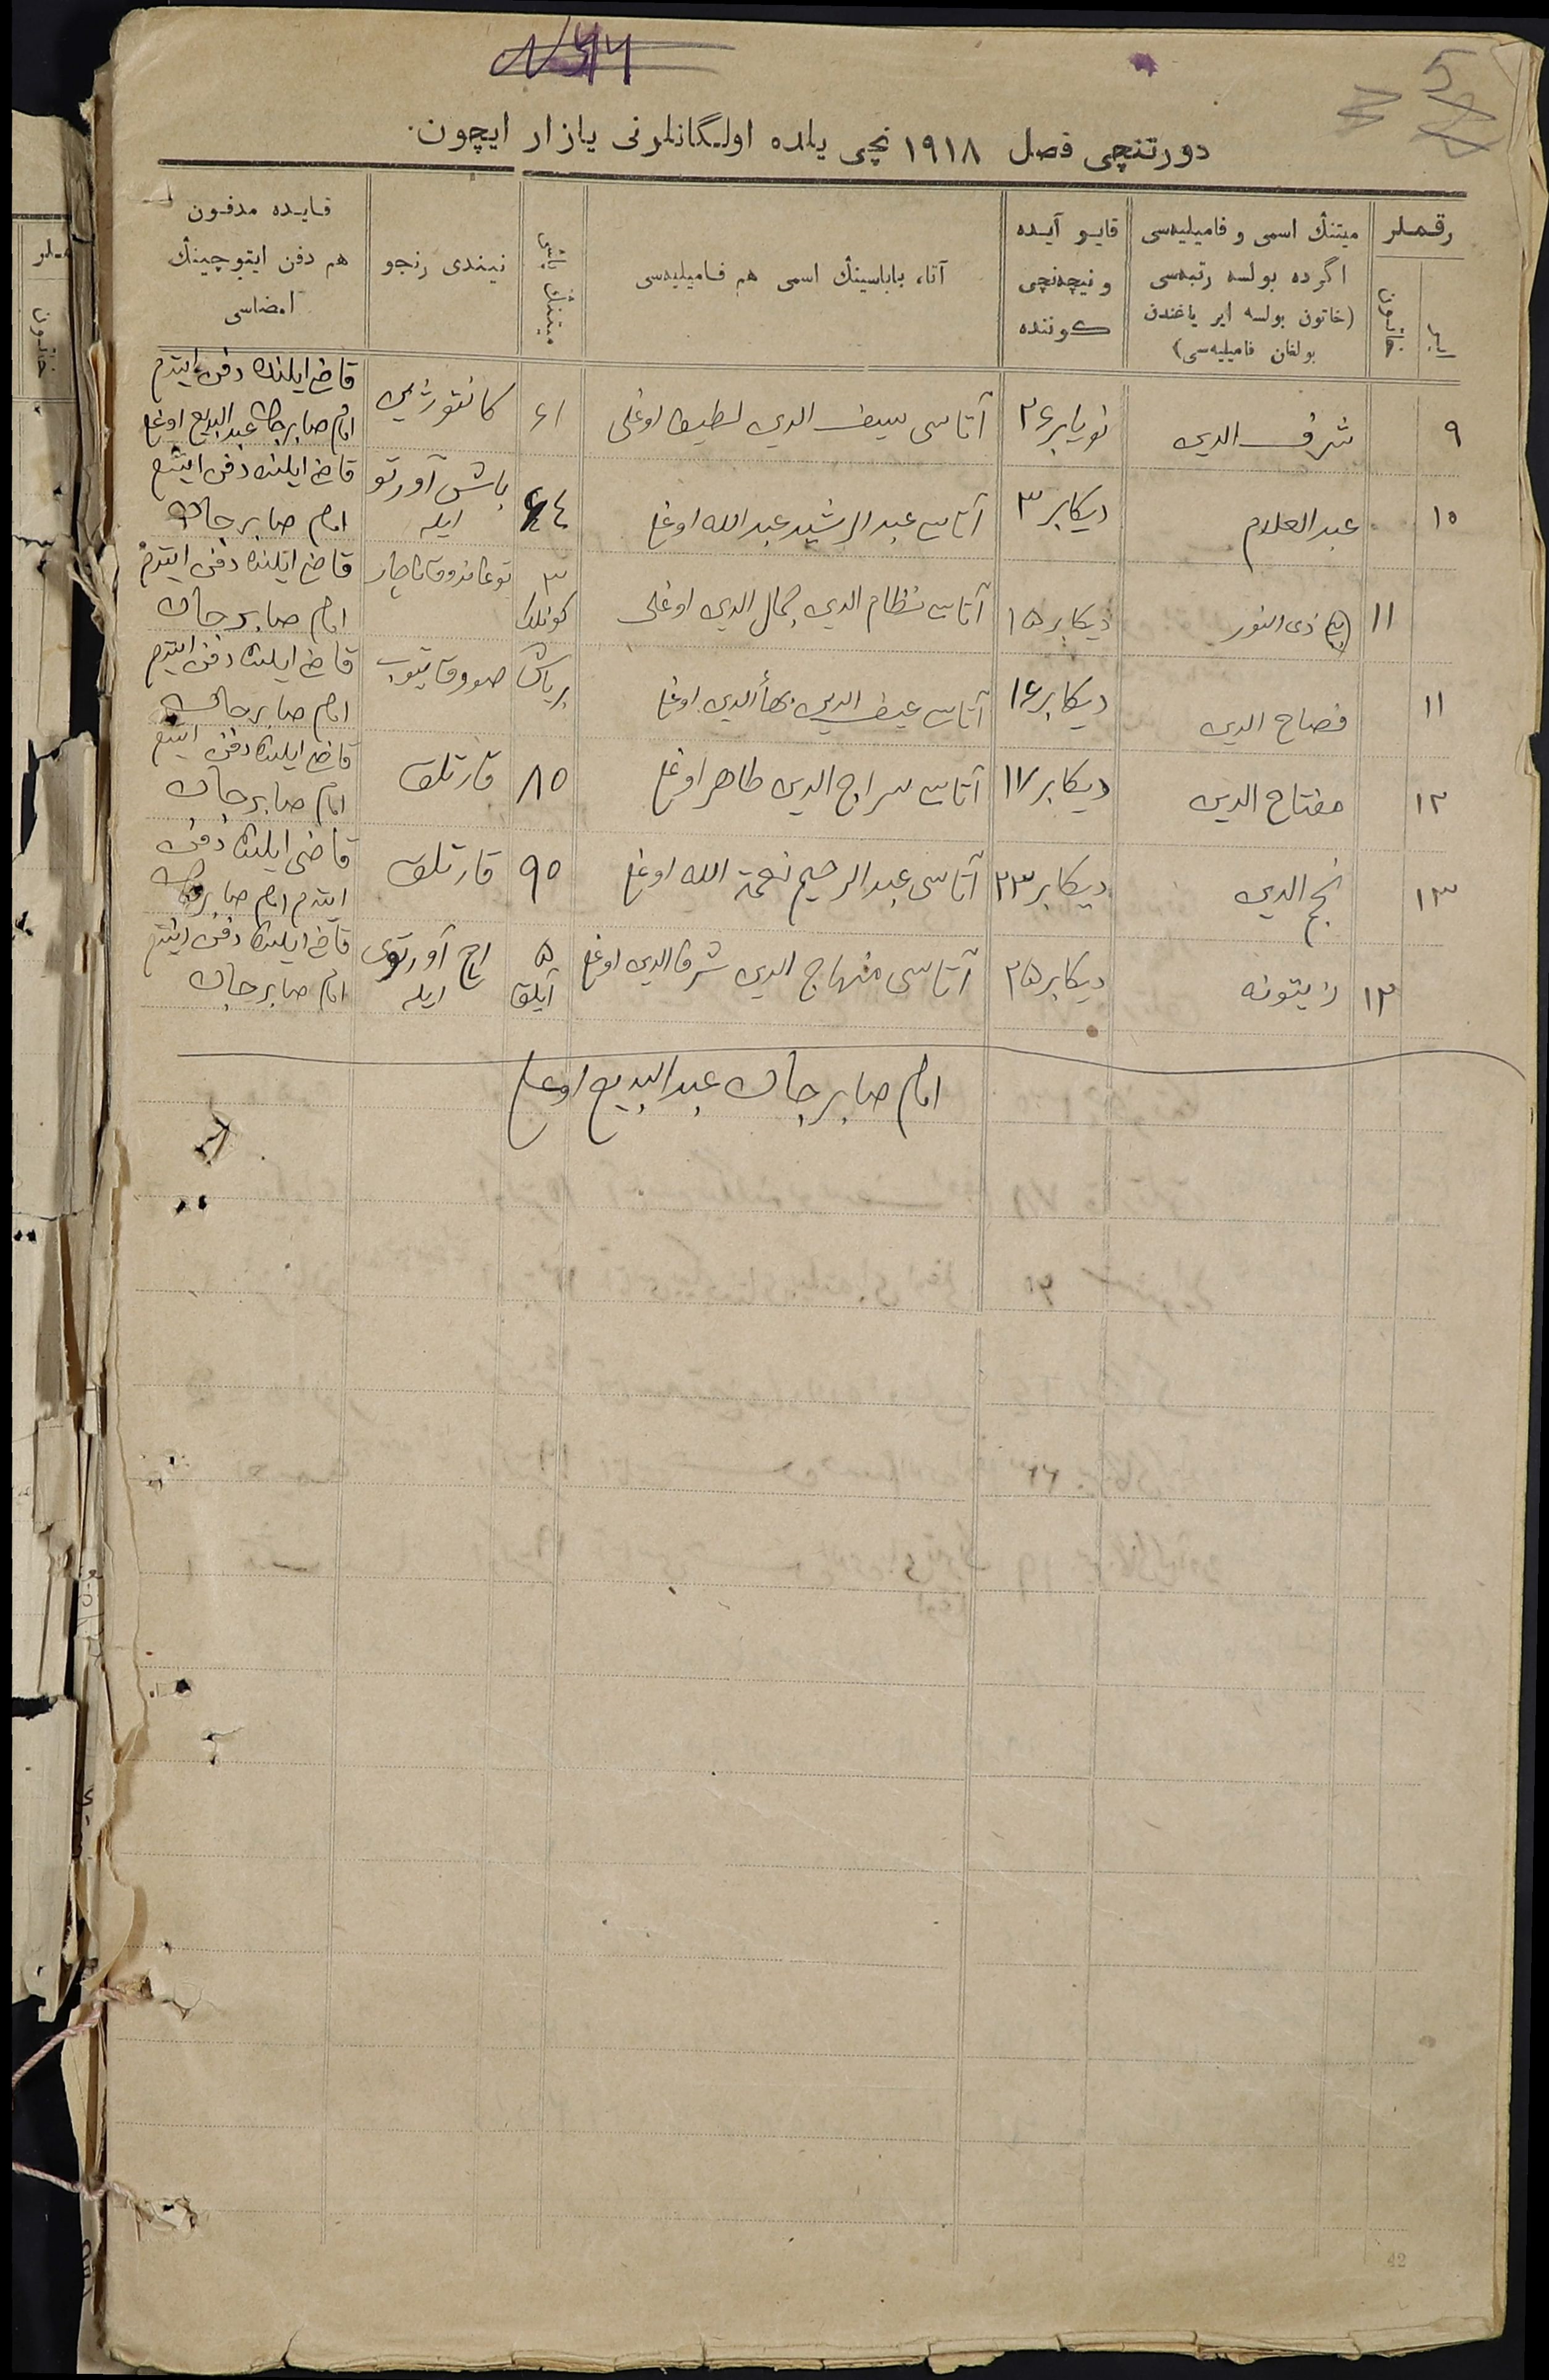 5
دورتنچی فصل ۱۹۱۸ نچی یلده اولـگانلرنی یازار ایچون.
رقـمـلر
میتنڭ اسمی و فامیلیه‌سی اگرده بولسه رتبه‌سی (خاتون بولسه ایر یاغندن بولغان فامیلیه‌سی)
قایـو آیـده و نیچه‌نچی کـوننده
آتا، باباسینڭ اسمی هم فـامیلیه‌سی
میتنڭ یاشی
نینـدی رنجو
قـایـده مدفـون هم دفن ایتوچینڭ امضاسی
۹ شرف الدین نویابر ۲۶ آتاسی سیف الدین لطیف اوغلی ۶۱ قاضی ایلنده دفن ایتدم
امام صابرجان عبد البدیع اوغلی
۱۰ عبد العلام دیکابر ۳ آتاسی عبد الرشید عبد الله اوغلی باش آورتو ایله قاضی ایلنده دفن ایتدم
امام صابرجان
۱۱ ذی النور دیکابر ۱۵ آتاسی نظام الدین جمال الدین اوغلی ۳ کونلک قاضی ایلنده دفن ایتدم
امام صابرجان
۱۱ فصاح الدین دیکابر ۱۶ آتاسی الدین بهاء الدین اوغلی بر یاش قاضی ایلنده دفن ایتدم
امام صابرجان
۱۲ مفتاح الدین دیکابر ۱۷ آتاسی سراج الدین طاهر اوغلی ۸۵ قارتلق قاضی ایلنده دفن ایتدم
امام صابرجان
۱۳ نجم الدین دیکابر ۲۳ آتاسی عبد الرحیم نعمة الله اوغلی ۹۵ قارتلق قاضی ایلنده دفن
ایتدم امام صابرجان
۱۲ زیتونه دیکابر ۲۵ آتاسی منهاج الدین شرف الدین اوغلی ۵ آیلق اچ آورتوی ایله قاضی ایلنده دفن ایتدم
امام صابرجان
امام صابرجان عبد البدیع اوغلی
42